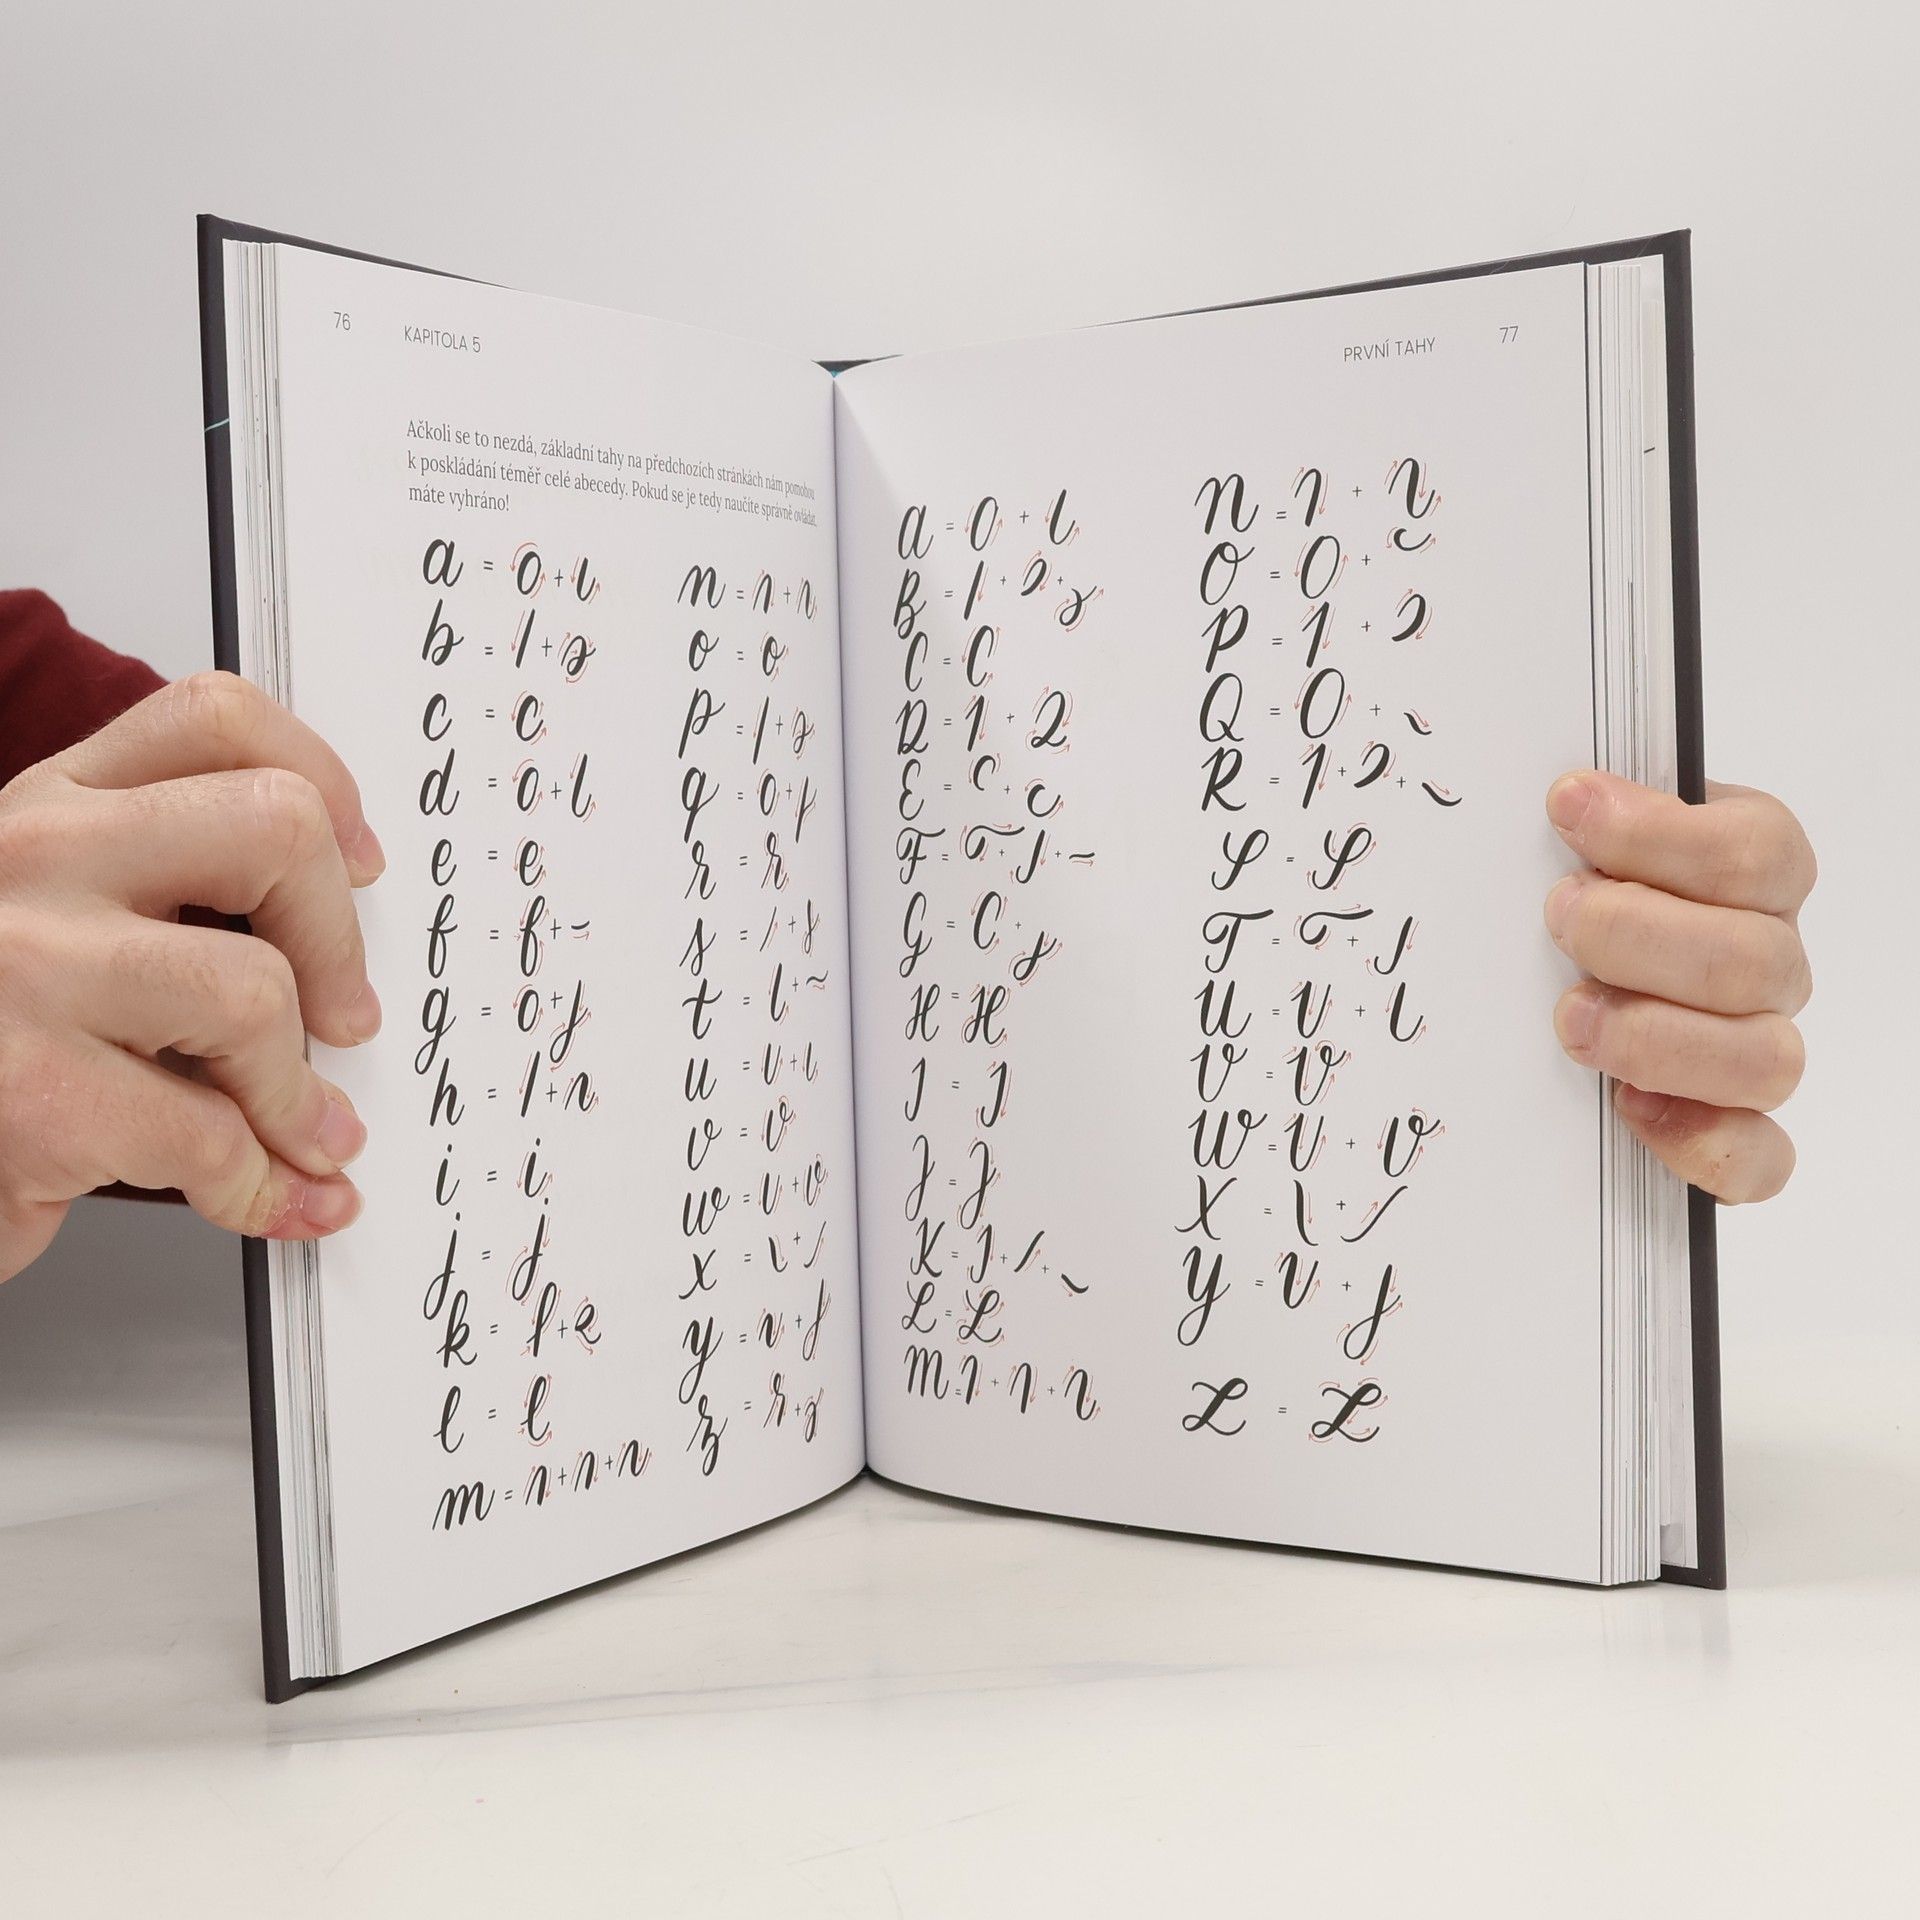 76 KAPITOLA 5
Ačkoli se to nezdá, základní tahy na předchozích stránkách nám pomohou
k poskládání téměř celé abecedy. Pokud se je tedy naučíte správně ovládat,
máte vyhráno!
a = o + ι
b = l +
c = c
d = o + l
e = e
f = f + -
g = o + j
h = l + n
i = i
j = j
k = l +
l = l
m = n + n + n
n = n + n
o = o
p = l +
q = o +
r = r
s = / +
t = l + ~
u = υ + ι
v = v
w = υ + v
x = \ + /
y = υ + j
z = r + 
PRVNÍ TAHY 77
A = O + ι
B = 1 + +
C = C
D = 1 + 2
E = c + c
F = + J + ~
G = C + j
H = H
I = I
J = J
K = I + / + ~
L = L
M = 1 + 1 + 
N = 1 + 
O = O + 
P = 1 + 
Q = O + ~
R = 1 + + ~
S = S
T = + J
U = U + ι
V = V
W = U + V
X = \ + /
Y = U + j
Z = Z